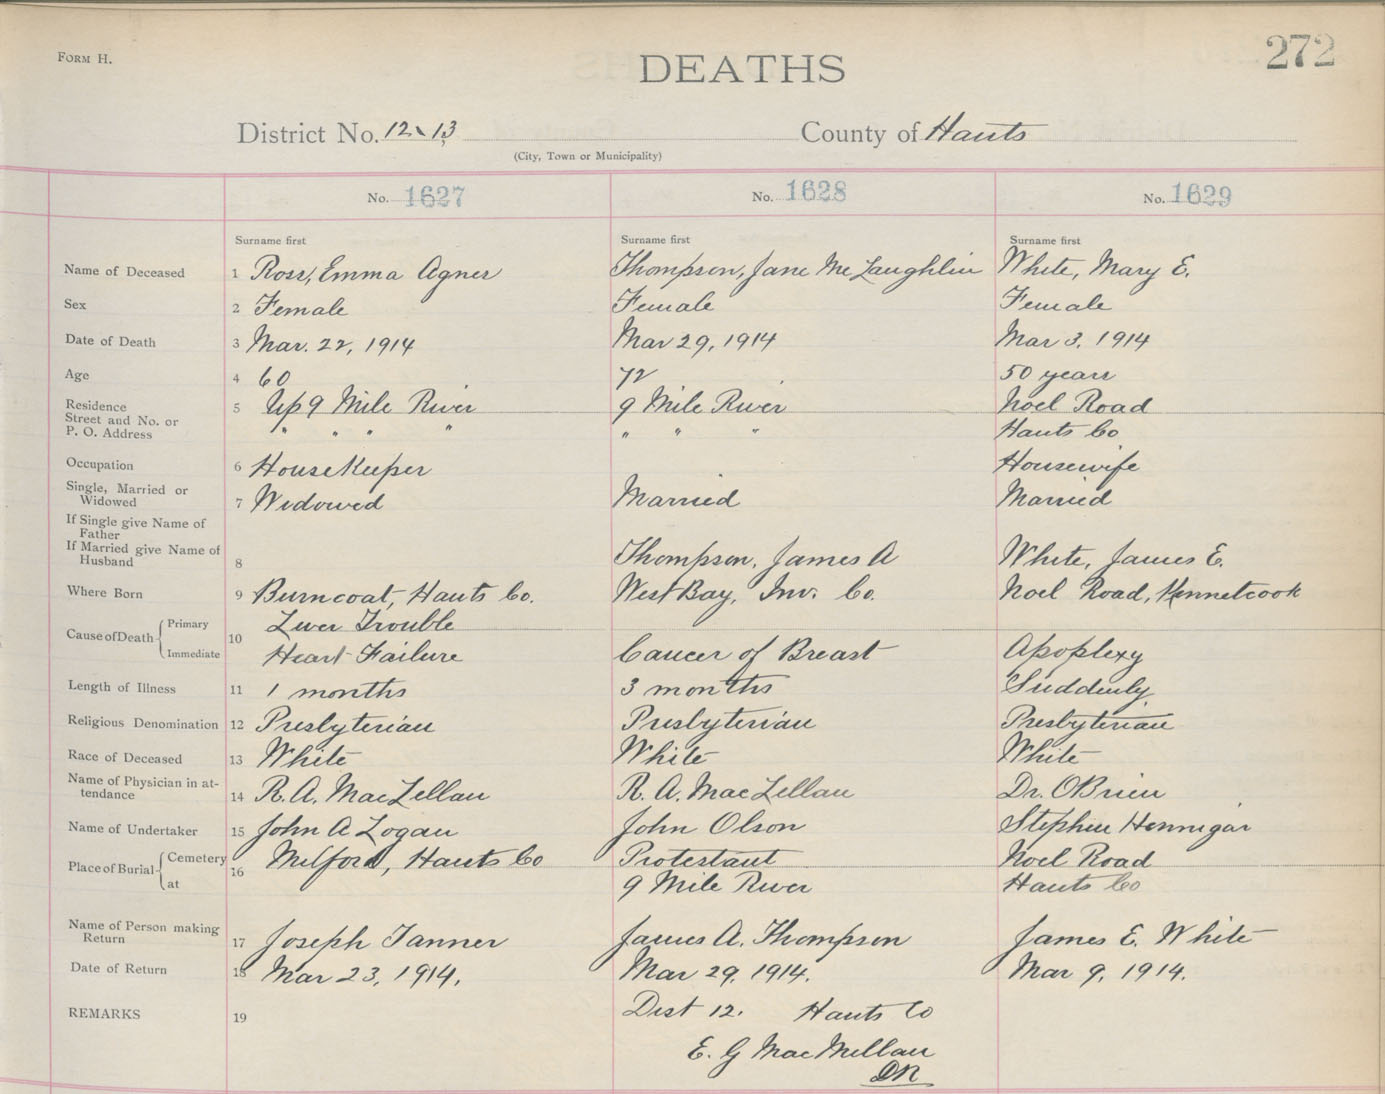 FORM H.
DEATHS
272
District No. 12 & 13 County of Hants
(City, Town or Municipality)
No. 1627 No. 1628 No. 1629
Surname first Surname first Surname first
Name of Deceased 1 Ross, Emma Agnes Thompson, Jane McLaughlin White, Mary E.
Sex 2 Female Female Female
Date of Death 3 Mar. 22, 1914 Mar 29, 1914 Mar 3, 1914
Age 4 60 72 50 years
Residence 5 Up 9 Mile River 9 Mile River Noel Road
Street and No. or
P. O. Address " " " " " " " Hants Co
Occupation 6 HouseKeeper Housewife
Single, Married or
Widowed 7 Widowed Married Married
If Single give Name of
Father
If Married give Name of
Husband 8 Thompson, James A White, James E.
Where Born 9 Burncoat, Hants Co. West Bay, Inv. Co. Noel Road, Kennetcook
Cause of Death Primary 10 Liver Trouble
Immediate Heart Failure Cancer of Breast Apoplexy
Length of Illness 11 1 months 3 months Suddenly
Religious Denomination 12 Presbyterian Presbyterian Presbyterian
Race of Deceased 13 White White White
Name of Physician in at-
tendance 14 R. A. MacLellan R. A. MacLellan Dr. OBrien
Name of Undertaker 15 John A Logan John Olson Stephen Hennigar
Place of Burial Cemetery 16 Milford, Hants Co Protestant Noel Road
at 9 Mile River Hants Co
Name of Person making
Return 17 Joseph Tanner James A. Thompson James E. White
Date of Return 18 Mar 23, 1914. Mar 29, 1914. Mar 9, 1914.
REMARKS 19 Dist 12. Hants Co
E. G MacMillan
DR